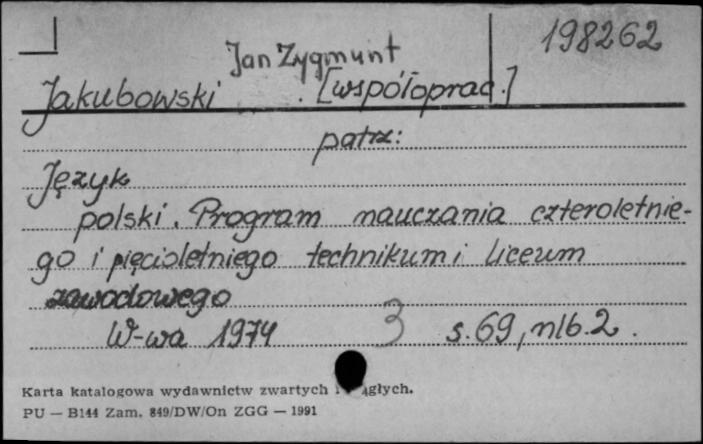 198262
Jan Zygmunt
Jakubowski . [współoprac.]
patrz:
Język
polski. Program nauczania czteroletnie-
go i pięcioletniego technikum i liceum
zawodowego
W-wa 1974 3 s. 69, nlb. 2.
Karta katalogowa wydawnictw zwartych i ągłych.
PU — B144 Zam. 849/DW/On ZGG — 1991